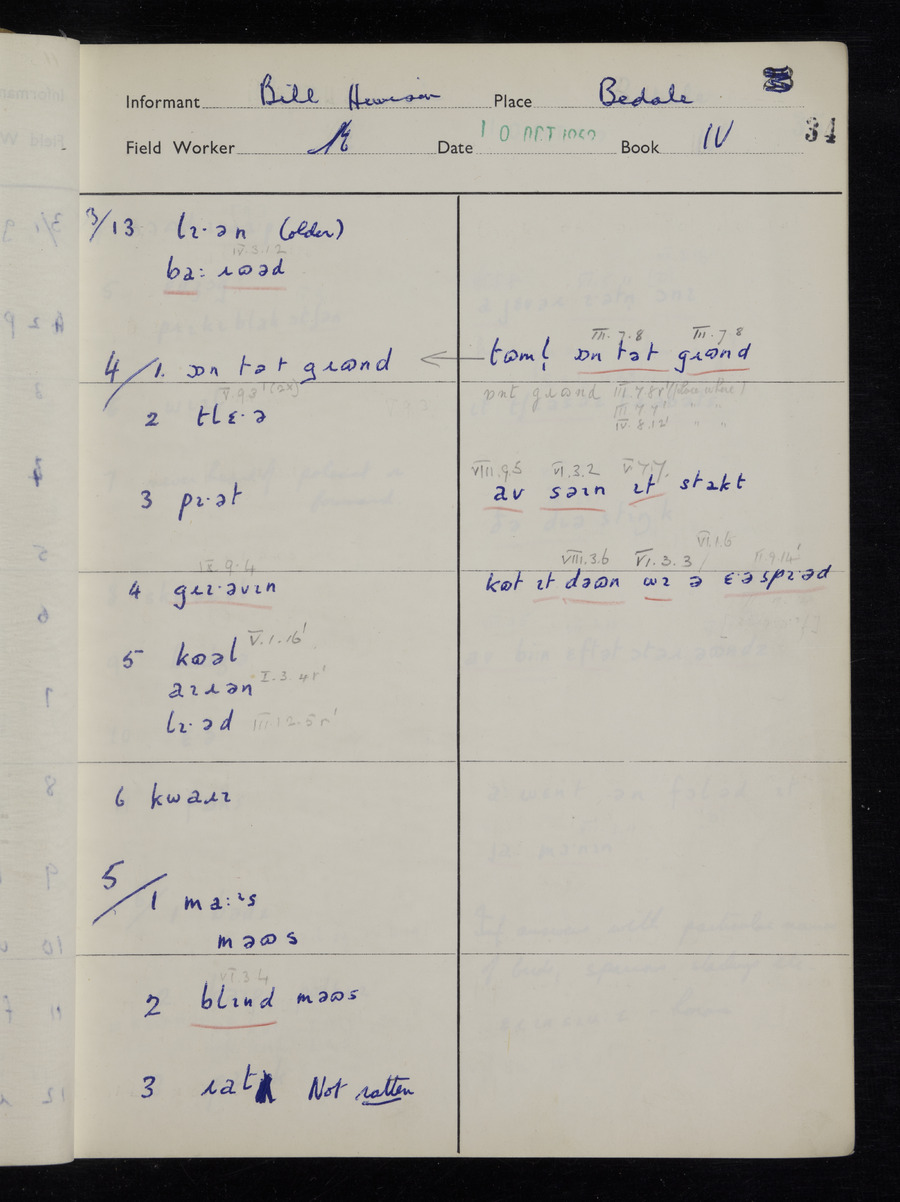 Informant Bill Place Bedale
Field Worker Date 10 OCT 1952 Book IV
31
3/13 lɪ·ən (older)
IV.3.12
ba: ɹʊəd
4/1. ɒn tət gɹʊnd ← tʊml̩ ɒn tət gɹʊnd
III.7.8 III.7.8
ɒnt gɹʊnd III.7.8r' (place where)
III.7.7' " "
IV.8.12' " "
2 tlɛ·ə
3 pɪ·ət
VIII.9.5 VI.3.2 V.7.7.
av səɪn ɪt stakt
IX.9.4
4 gɪɪ·əvɪn
VIII.3.6 VI.3.3 VI.1.6
kʊt ɪt dəʊn wɪ ə ɛ·əspɪ·əd
5 kʊəl V.1.16'
aɪɹən I.3.4r'
lɪ·əd III.12.5r'
6 kwaɹɪ
5/1 ma:ɪs
məʊs
VI.3.4
2 blɪnd məʊs
3 ɹat Not ratten